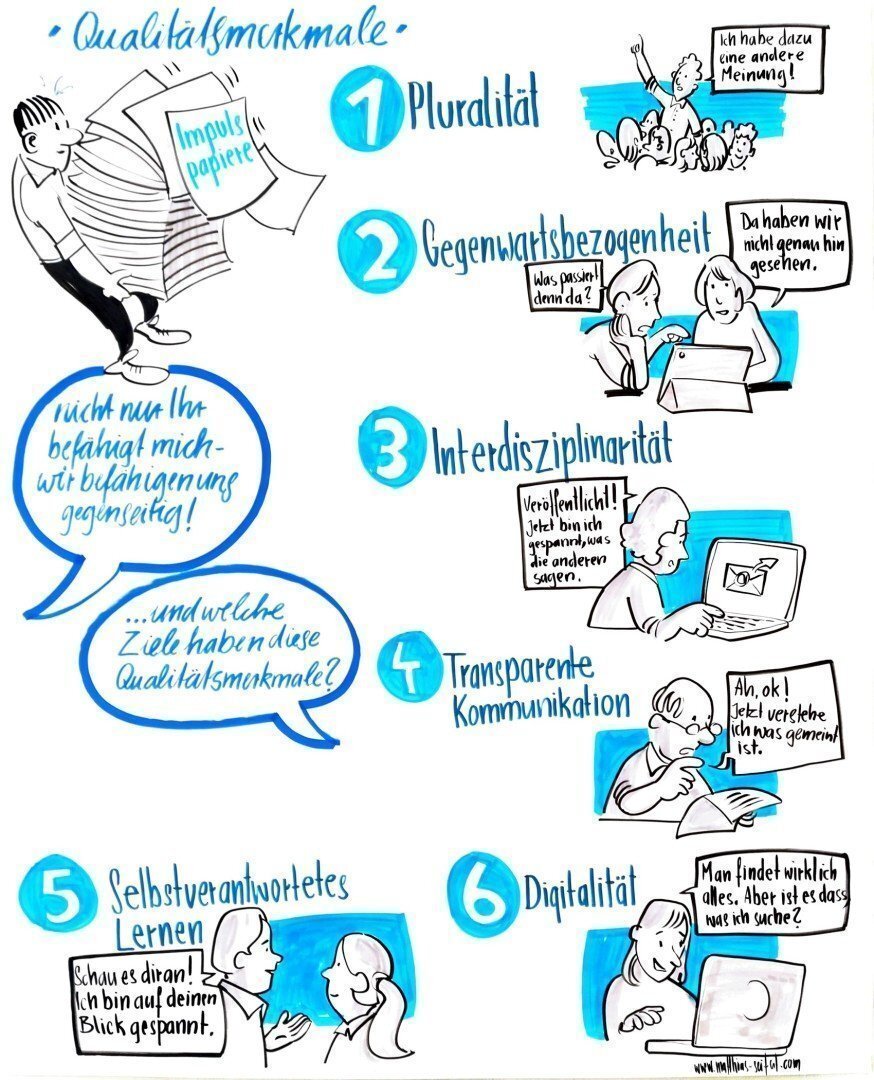 • Qualitätsmerkmale •
Impuls
papiere
nicht nur Ihr
befähigt mich-
wir befähigen uns
gegenseitig!
...und welche
Ziele haben diese
Qualitätsmerkmale?
1 Pluralität
Ich habe dazu
eine andere
Meinung!
2 Gegenwartsbezogenheit
Was passiert
denn da?
Da haben wir
nicht genau hin
gesehen.
3 Interdisziplinarität
Veröffentlicht!
Jetzt bin ich
gespannt, was
die anderen
sagen.
4 Transparente
Kommunikation
Ah, ok!
Jetzt verstehe
ich was gemeint
ist.
5 Selbstverantwortetes
Lernen
Schau es dir an!
Ich bin auf deinen
Blick gespannt.
6 Digitalität
Man findet wirklich
alles. Aber ist es dass
was ich suche?